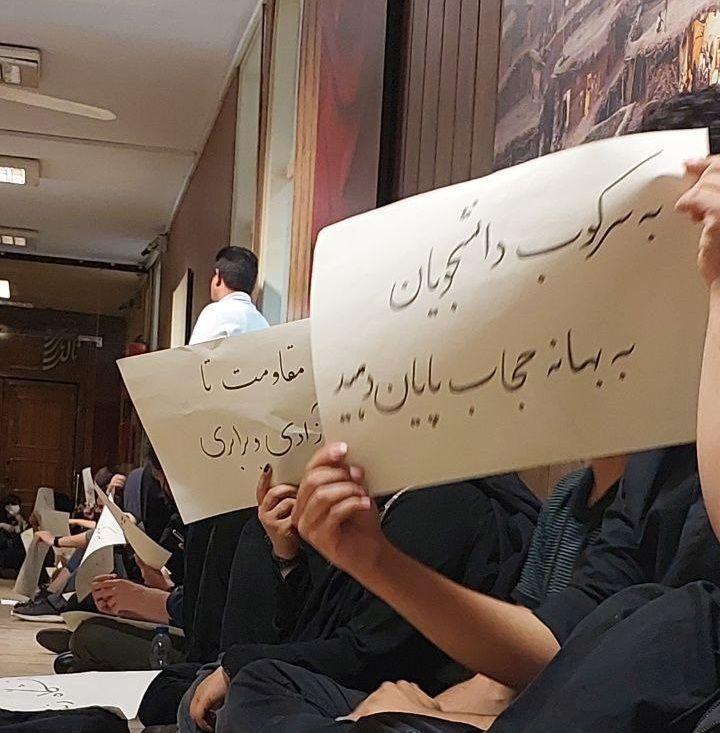 به سرکوب دانشجویان
به بهانه حجاب پایان دهید
مقاومت تا
آزادی و برابری
تالار